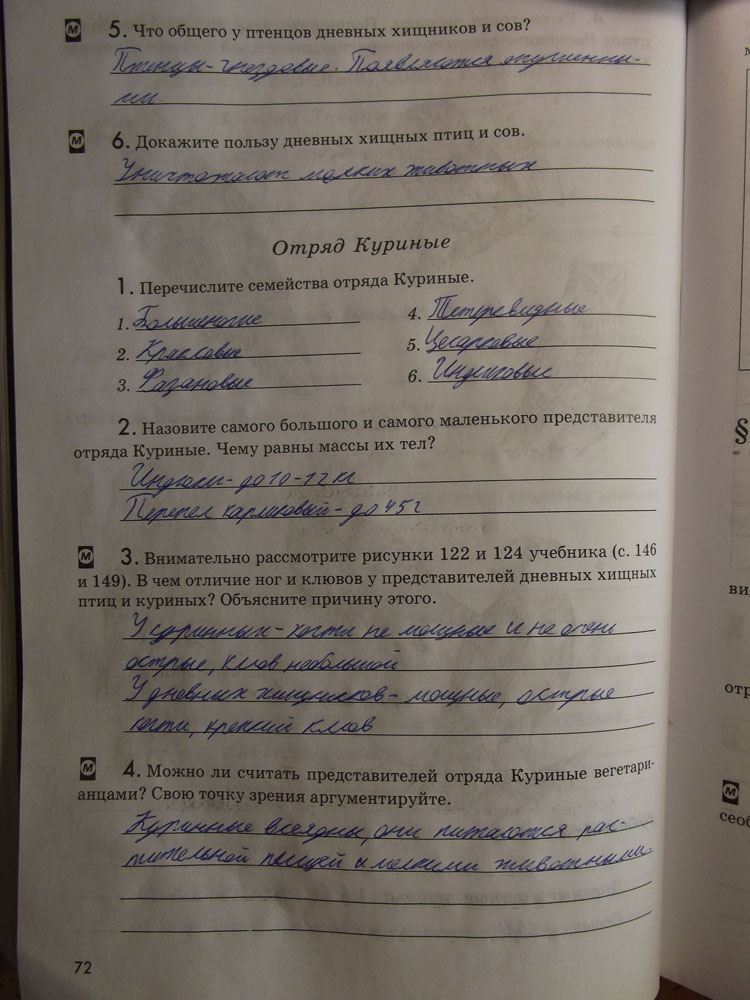 М 5. Что общего у птенцов дневных хищников и сов?
Птенцы-гнездовые. Появляются опушенны-
ми.
М 6. Докажите пользу дневных хищных птиц и сов.
Уничтожают мелких животных
Отряд Куриные
1. Перечислите семейства отряда Куриные.
1. Большеногие
4. Тетеревидные
2. Краксовые
5. Цесарковые
3. Фазановые
6. Индюковые
2. Назовите самого большого и самого маленького представителя
отряда Куриные. Чему равны массы их тел?
Индюки - до 10-12 кг
Перепел карликовый - до 45 г
М 3. Внимательно рассмотрите рисунки 122 и 124 учебника (с. 146
и 149). В чем отличие ног и клювов у представителей дневных хищных
птиц и куриных? Объясните причину этого.
У куринных - когти не мощные и не очень
острые, клюв небольшой
У дневных хищников - мощные, острые
когти, крепкий клюв
М 4. Можно ли считать представителей отряда Куриные вегетари-
анцами? Свою точку зрения аргументируйте.
Куринные всеядны, они питаются рас-
тительной пищей и мелкими животными.
72
§
ви
отр
М
сеоб